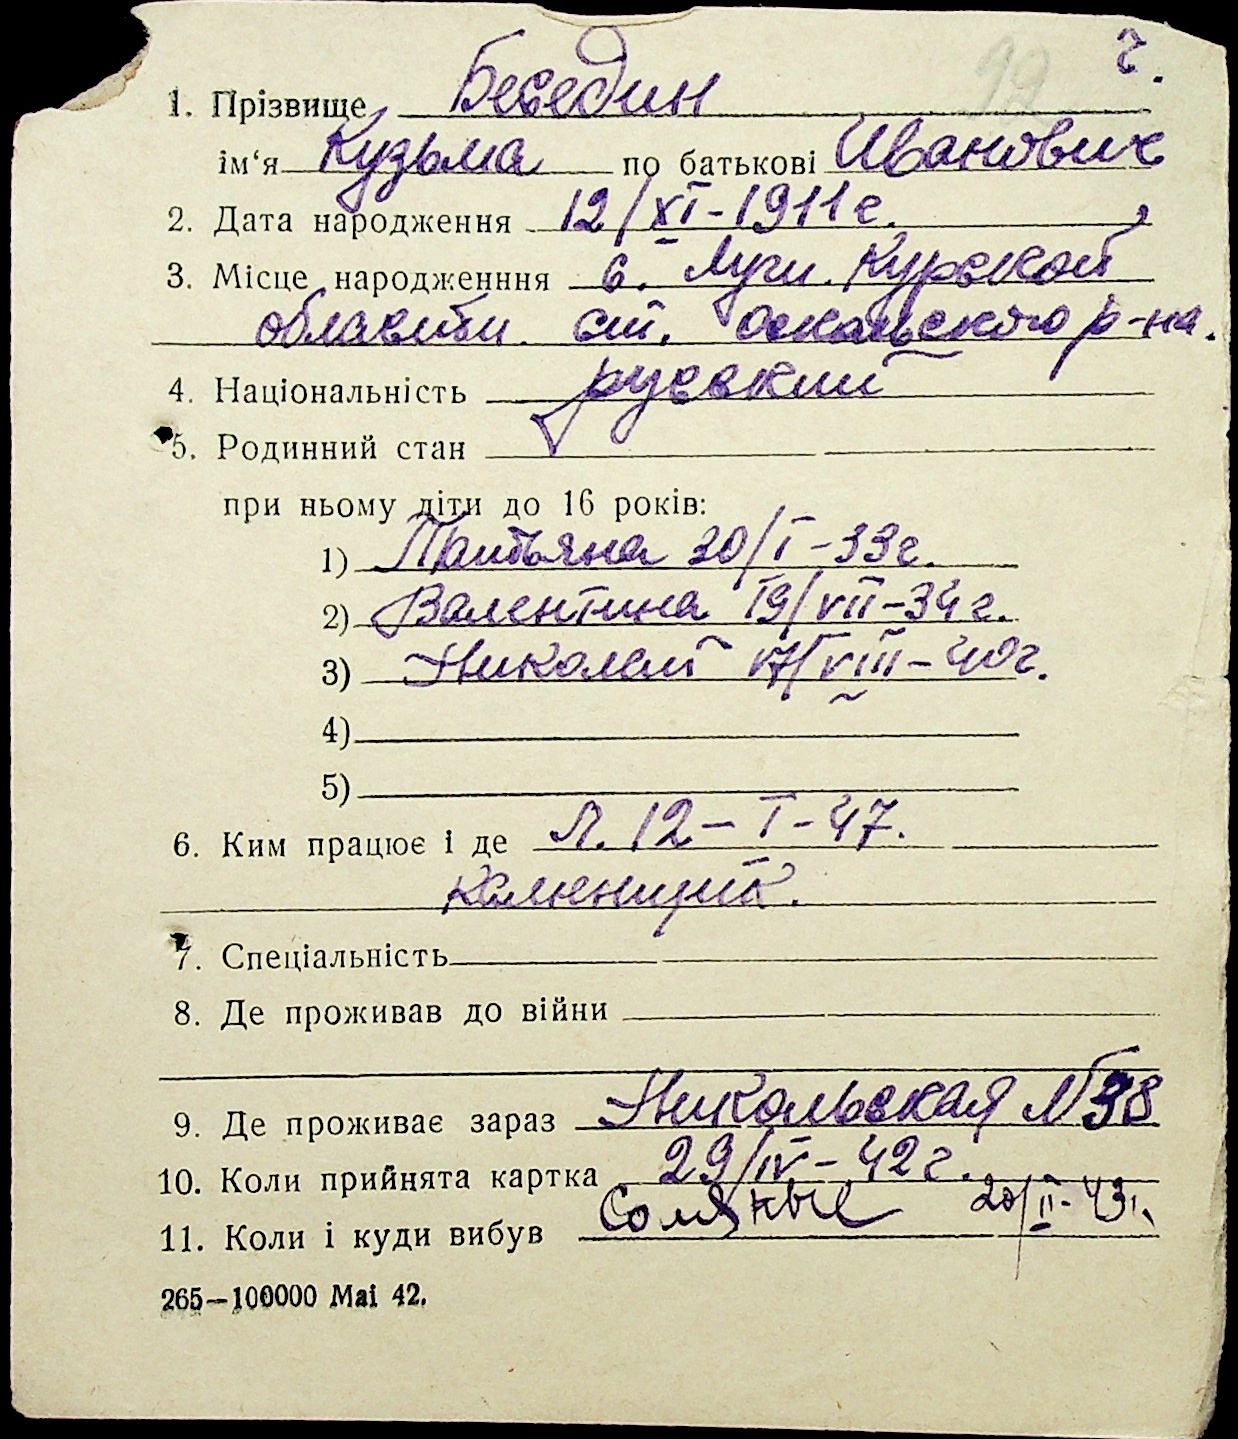 г.
1. Прізвище Беседин
ім‘я Кузьма по батькові Иванович
2. Дата народження 12/XI-1911г.
3. Місце народженння с. Луги. Курской
области. ст. оскольского р-на.
4. Національність русский
5. Родинний стан
при ньому діти до 16 років:
1) Татьяна 20/I-33г.
2) Валентина 19/VII-34г.
3) Николай 17/VIII-40г.
4)
5)
6. Ким працює і де Л. 12-I-47.
каменщик.
7. Спеціальність
8. Де проживав до війни
9. Де проживає зараз Никольская №38
10. Коли прийнята картка 29/IV-42г.
11. Коли і куди вибув 20/II-43г.
265—100000 Маі 42.